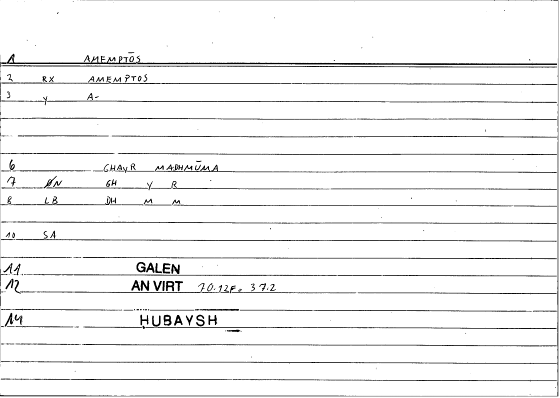 1 AMEMPTŌS
2 RX AMEMPTOS
3 y A-
6 GHAYR MADHMŪMA
7 ØN GH Y R
8 LB DH M M
10 SA
11 GALEN
12 AN VIRT 70.12F. 37.2
14 HUBAYSH